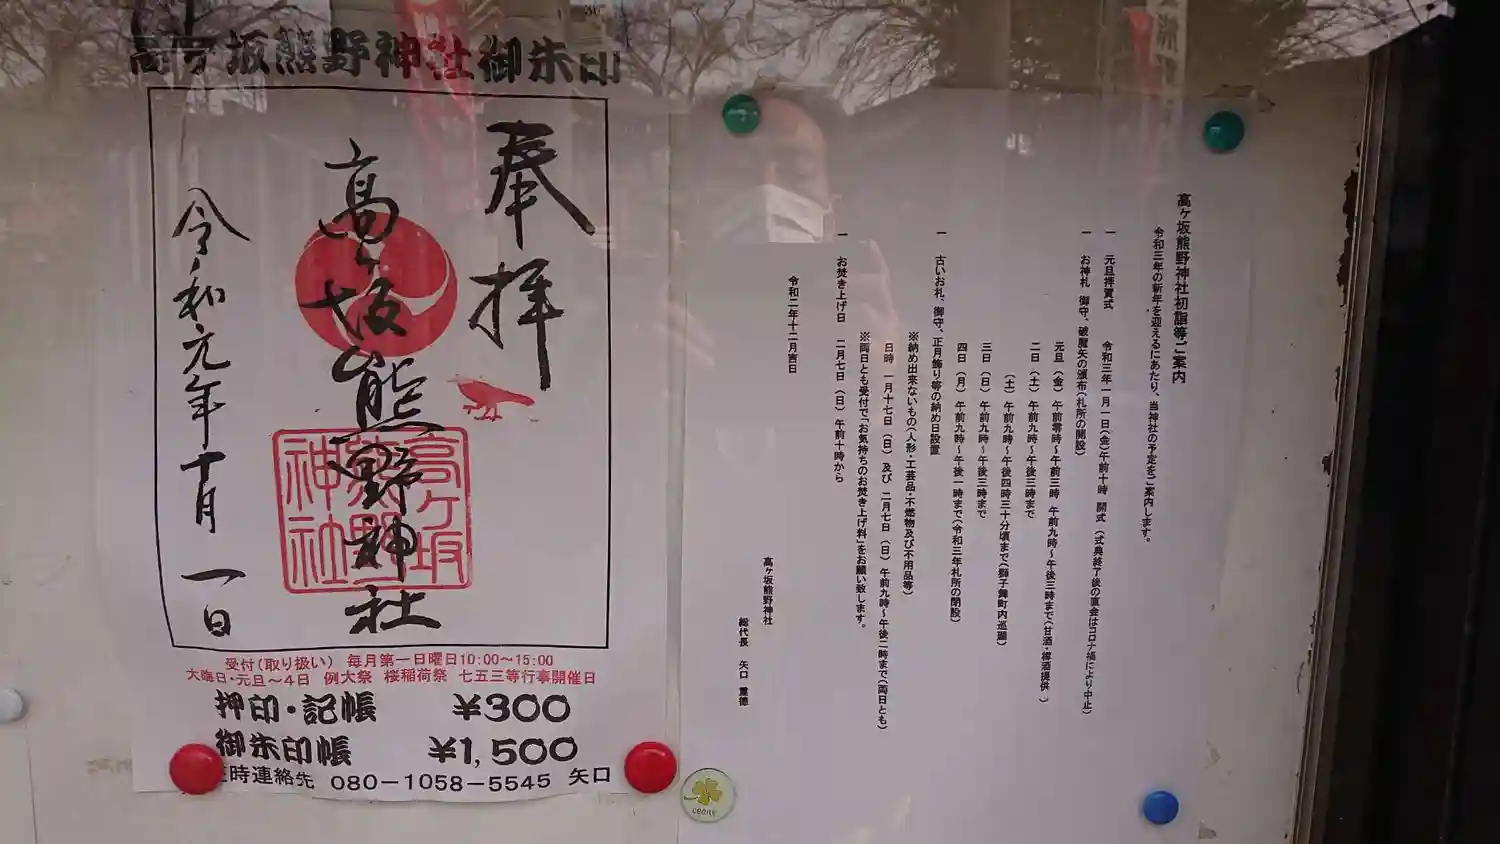 高ヶ坂熊野神社御朱印
奉拝
高ヶ坂熊野神社
令和元年十月一日
高ヶ坂
熊野
神社
受付（取り扱い）　毎月第一日曜日10:00～15:00
大晦日・元旦～4日　例大祭　桜稲荷祭　七五三等行事開催日
押印・記帳　¥300
御朱印帳　¥1,500
時連絡先　080－1058－5545　矢口
高ヶ坂熊野神社初詣等ご案内
令和三年の新年を迎えるにあたり、当神社の予定をご案内します。
一　元旦拝賀式　令和三年一月一日（金）午前十時　開式　（式典終了後の直会はコロナ禍により中止）
一　お神札　御守、破魔矢の頒布（札所の開設）
元旦（金）午前零時～午前三時　午前九時～午後三時まで（甘酒・樽酒提供　）
二日（土）午前九時～午後三時まで
（土）午前九時～午後四時三十分頃まで（獅子舞町内巡廻）
三日（日）午前九時～午後三時まで
四日（月）午前九時～午後一時まで（令和三年札所の閉設）
一　古いお札、御守、正月飾り等の納め日設置
※納め出来ないもの（人形・工芸品・不燃物及び不用品等）
日時　一月十七日（日）及び　二月七日（日）午前九時～午後二時まで（両日とも）
※両日とも受付で「お気持ちのお焚き上げ料」をお願い致します。
一　お焚き上げ日　二月七日（日）午前十時から
令和二年十二月吉日
高ヶ坂熊野神社
総代長　矢口　重徳